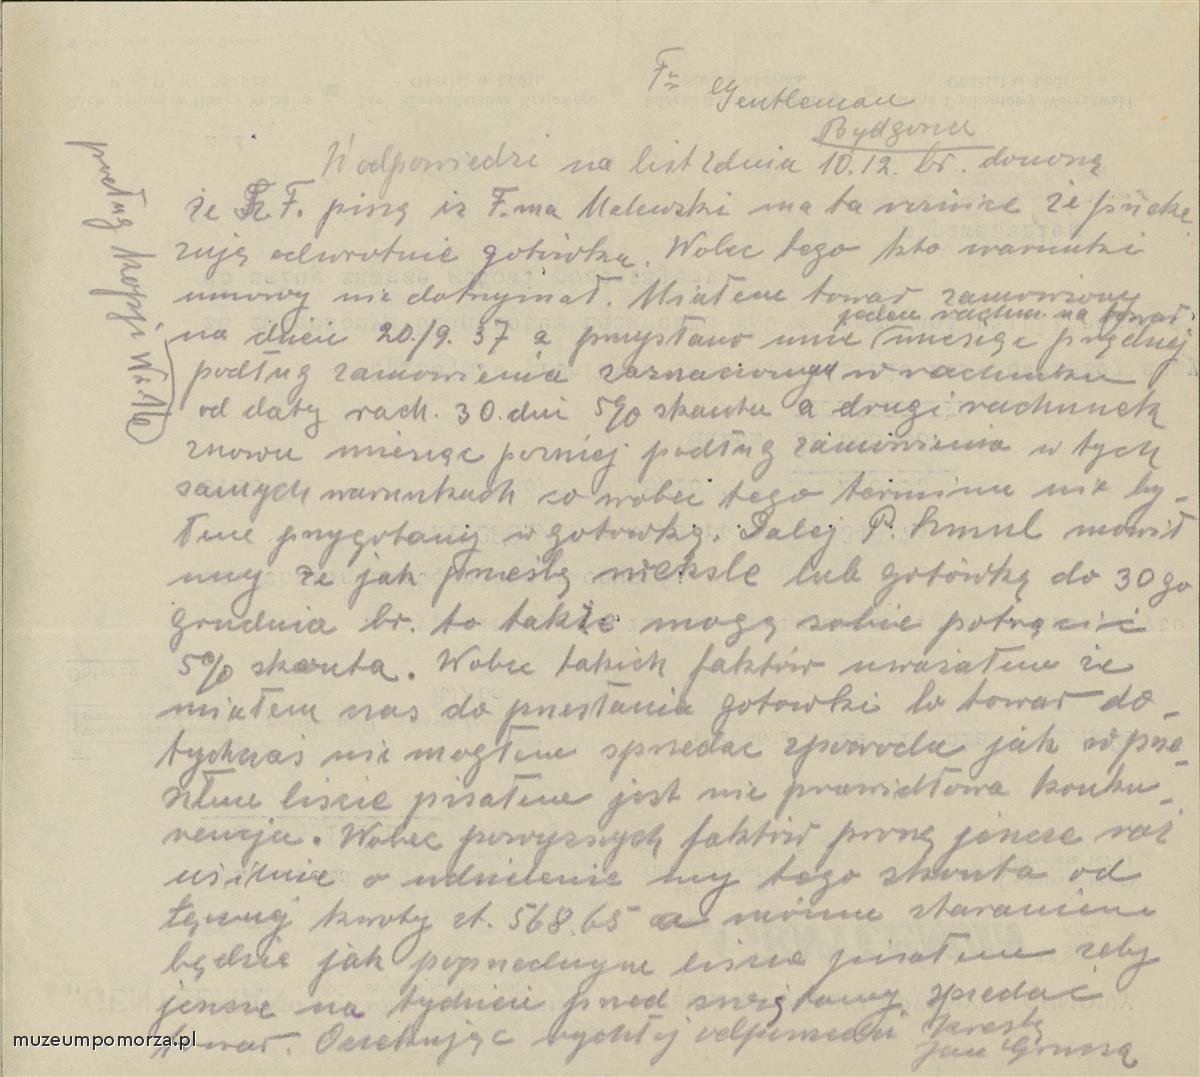 Fa Gentleman
Bydgoszcz
W odpowiedzi na list z dnia 10.12. br. donoszą
że F. piszą iż F.ma Malewski że
odwrotnie gotówką. Wobec tego kto warunki
umowy nie dotrzymał. Miałem towar zamówiony
jeden rachun. na towar
na dzień 20./9. 37 a przysłano mnie miesiąc prędzej
podług zamówienia zaznaczonych w rachunku
od daty rach. 30. dni 5% skonta a drugi rachunek
znowu miesiąc pozniej podług zamówienia w tych
samych warunkach co wobec tego terminu nie by-
łem przygotany w gotowką. Dalej P. mowił
my że jak prześlą weksle lub gotówką do 30 go
grudnia br. to także mogą sobie potrącić
5% skonta. Wobec takich faktów uważałem że
miałem czas do przesłania gotowki bo towar do-
tychczas nie mogłem sprzedac zpowodu jak w prze-
szłem liscie pisałem jest nie prawidłowa konku-
rencja. Wobec powyzszych faktów proszą jeszcze raz
usilnie o udzielenie my tego skonta od
kwoty zł. 568.65 a staraniem
będzie jak poprzednym liscie pisałem zeby
jeszcze na tydzien przed swiętamy spredać
towar. Oczekując rychłej odpowiedzi kreslą
Jan
podług kopji Nr. 16
muzeumpomorza.pl